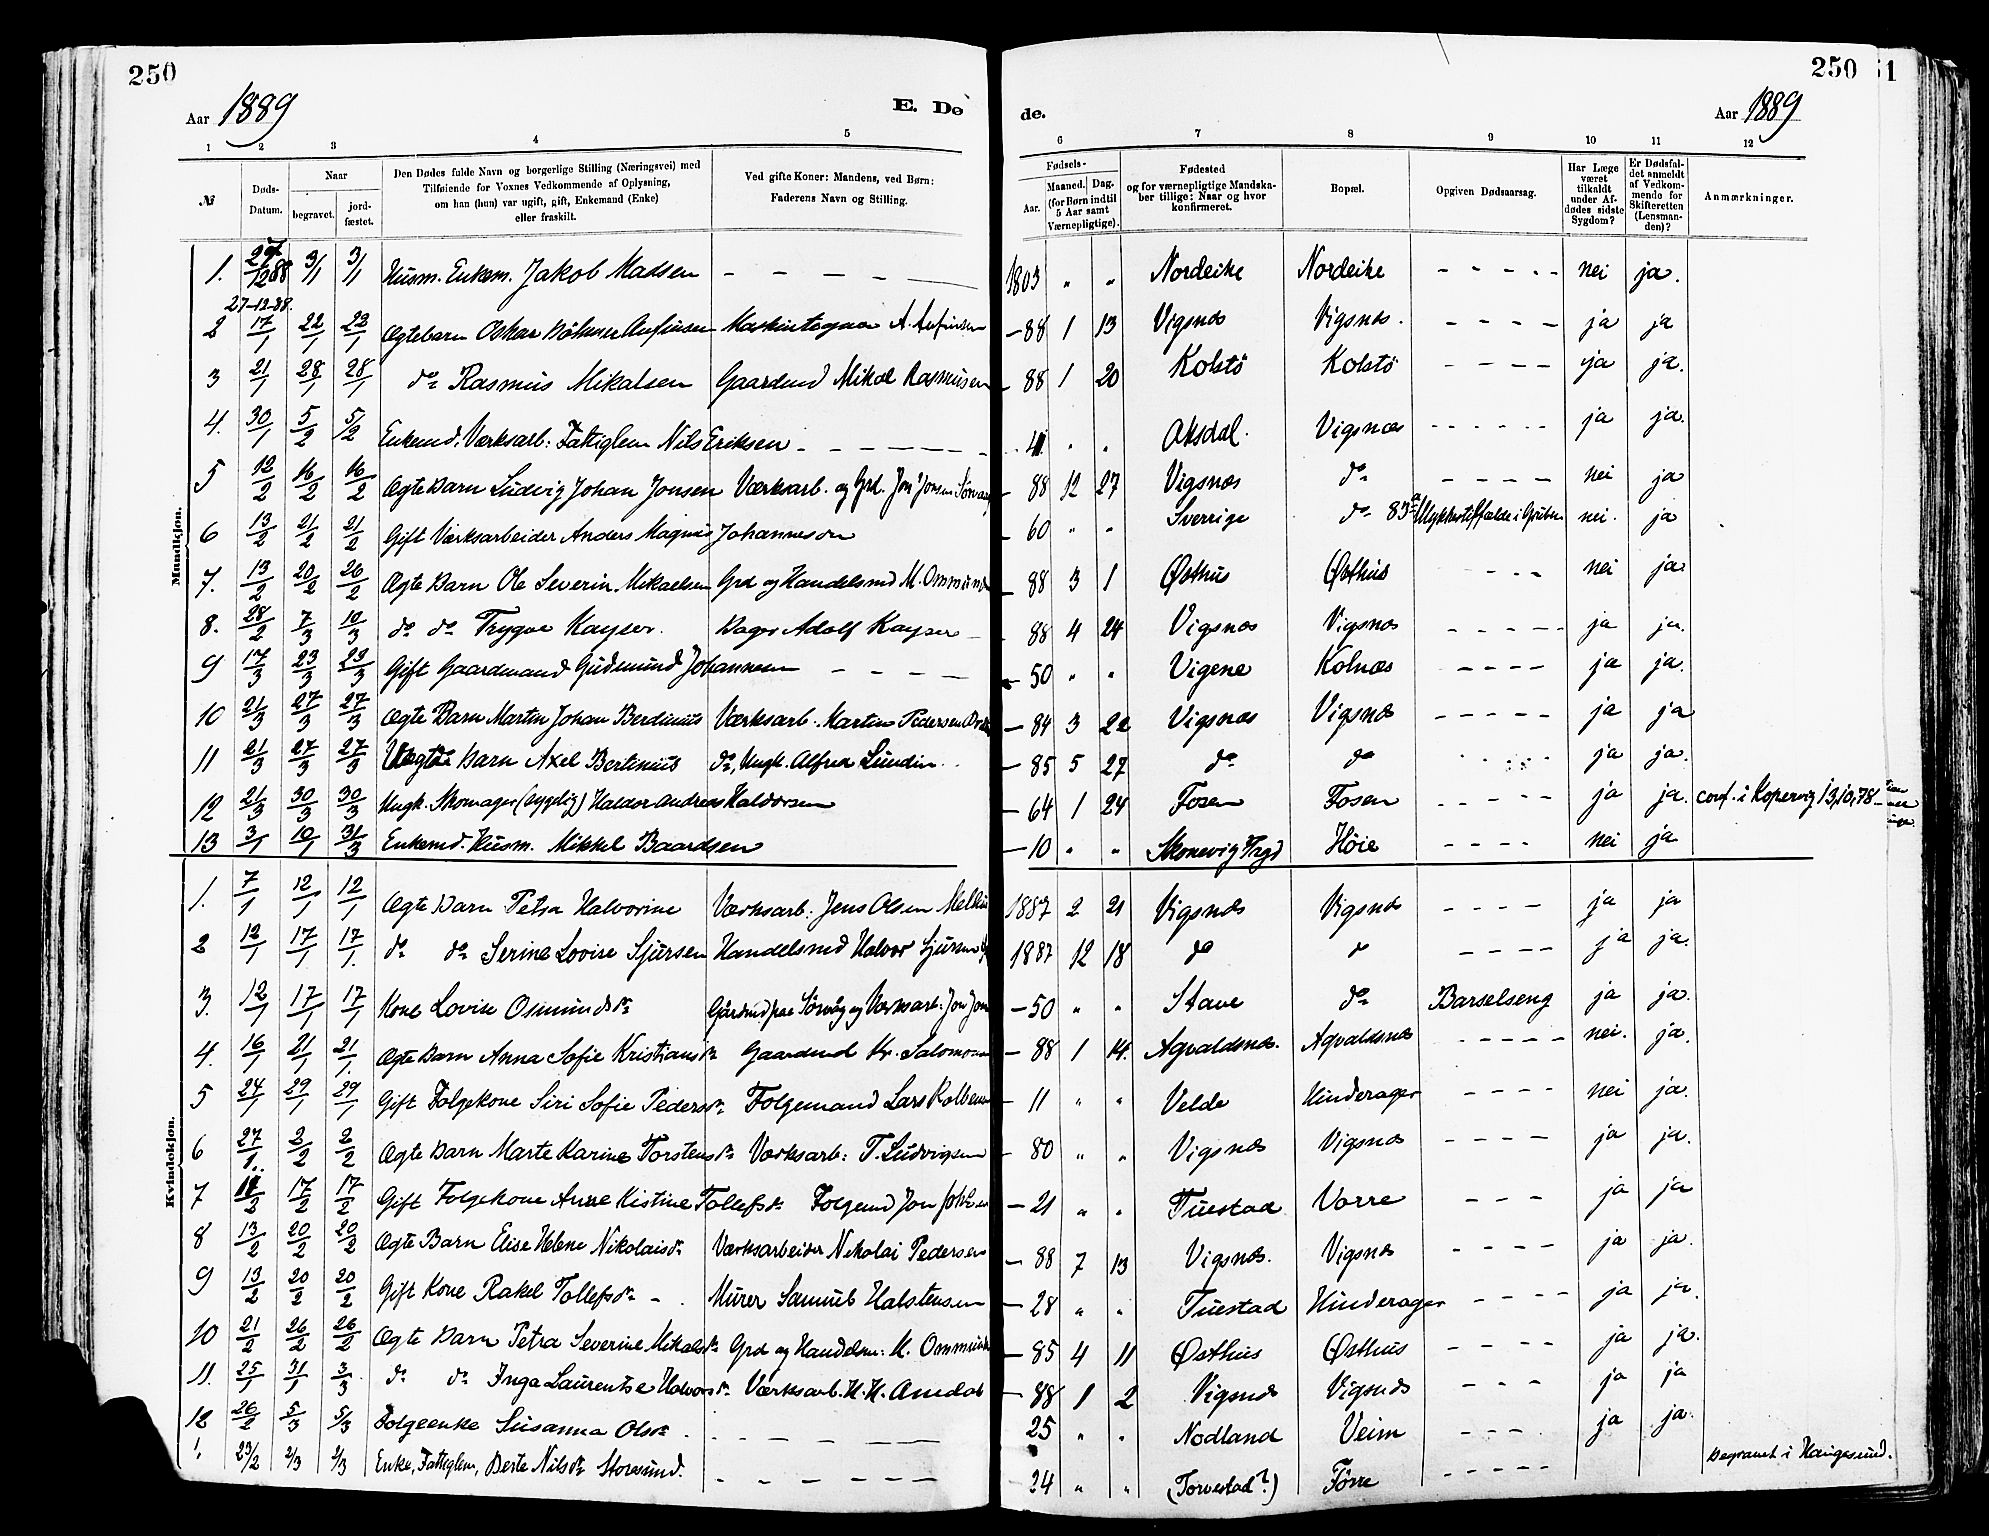 250
Aar 1889
E. Dø
de.
Aar 1889
250
1 2 3 4 5 6 7 8 9 10 11 12
№ Døds-Datum. Naar begravet. jordfæstet. Den Dødes fulde Navn og borgerlige Stilling (Næringsvei) med Tilføiende for Voxnes Vedkommende af Oplysning, om han (hun) var ugift, gift, Enkemand (Enke) eller fraskilt. Ved gifte Koner: Mandens, ved Børn: Faderens Navn og Stilling. Fødsels- Aar. Maaned. Dag. (for Børn indtil 5 Aar samt Værnepligtige). Fødested og for værnepligtige Mandskaber tillige: Naar og hvor konfirmeret. Bopæl. Opgiven Dødsaarsag. Har Læge været tilkaldt under Afdødes sidste Sygdom? Er Dødsfaldet anmeldt af Vedkommende for Skifteretten (Lensmanden)? Anmærkninger.
Mandkjøn.
1. 27/12 88 3/1 3/1 Husm. Enkem. Jakob Madsen - - - - 1803 " " Nordeike Nordeike - - - - nei ja.
27-12-88.
2 17/1 22/1 23/1 Ægtebarn Oskar Anfinsen A. Anfinsen - 88 1 13 Vigsnæs Vigsnæs. - - - - ja ja
3 21/1 28/1 28/1 do Rasmus Mikalsen Gaardmd Mikal Rasmusen - 88 1 20 Kolstö Kolstö - - - - ja ja.
4. 30/1 5/2 5/2 Enkemd. Værksarb: Fattiglem Nils Eriksen - - - - 41 " " Aksdal. Vigsnæs - - - - ja ja.
5 12/2 16/2 16/2 Ægte Barn Ludvig Johan Jonsen Værksarb. og Grd. Jon Jonsen - 88 12 27 Vigsnæs do - - - - nei ja
6 13/2 21/2 21/2 Gift Værksarbeider Anders Magnus Johanneson - 60 " " Sverrige do 83 Ulykkestilfælde i Gruben nei. ja
7. 13/2 20/2 26/2 Ægte Barn Ole Severin Mikaelsen Grd og Handelsmd M. - 88 3 1 Østhus Østhus - - - - nei ja.
8. 28/2 7/3 10/3 do do Trygve Kayser. Bager Adolf Kayser - 88 4 24 Vigsnæs Vigsnæs - - - - ja ja.
9 17/3 23/3 23/3 Gift Gaardmand Gudmund Johannesen - - - - 50 " " Vigene Kolnæs - - - - ja ja.
10 21/3 27/3 27/3 Ægte Barn Martin Johan Berdinius Værksarb. Martin Pedersen - 84 3 22 Vigsnæs Vigsnæs - - - - ja ja
11 21/3 27/3 27/3 Uægte Barn Axel Bertinius do, Ungk. Alfred Lundin - 85 5 27 do do ja ja.
12 21/3 30/3 30/3 Ungk. Skomager (sygelig) Haldor Andreas Haldorsen - 64 1 24 Fosen Fosen - - - - ja ja. conf. i Kopervig 13,10,78
13 3/1 10/1 31/3 Enkemd. Husm. Mikkel Baardsen - 10 " " Skonevig Høie - - - - nei ja
Kvindekjøn.
1. 7/1 12/1 12/1 Ægte Barn Petra Halvorine Værksarb: Jens Olsen 1887 2 21 Vigsnæs Vigsnæs - - - - ja ja
2 12/1 17/1 17/1 do do Serine Lovise Sjursen Handelsmd Halvor Sjursen 1887 12 18 do do - - - - ja ja.
3. 12/1 17/1 17/1 Kone Lovise Osmundsdr Gårdmd paa Sörvåg og Værksarb: Jon - 50 " " Stave do Barselseng ja ja.
4. 16/1 21/1 21/1 Ægte Barn Anna Sofie Kristiansdr Gaardmd Kr. - 88 1 14. Agvaldsnæs. Agvaldsnæs - - - - nei. ja.
5 24/1 29/1 29/1 Gift Folgekone Siri Sofie Pedersdr Folgemand Lars - 11 " " Velde Hinderager - - - - nei ja.
6 27/1 2/2 2/2 Ægte Barn Marte Karine Torstensdr Værksarb: T. Ludvigsen - 80 " " Vigsnæs Vigsnæs - - - - ja ja.
7 11/2 17/2 17/2 Gift Folgekone Anne Kistine Tollefsdr Folgemd Jon - 21 " " Tuestad Vorre - - - ja ja
8 13/2 20/2 20/2 Ægte Barn Elise Helene Nikolaisdr Værksarbeider Nikolai Pedersen - 88 7 13 Vigsnæs. Vigsnæs - - - - ja ja.
9 13/2 20/2 20/2 Gift Kone Rakel Tollefsdr - . Murer Samuel Halstensen - 28 " " Tuestad Hinderager - - - - ja ja.
10 21/2 26/2 26/2 Ægte Barn Petra Severine Mikalsdr Grd og Handelsm: M. - 85 4 11 Østhus Østhus - - - - ja ja.
11. 25/1 31/1 3/3 do do Inga Laurentse Halvorsdr Værksarb. H. H. - 88 1 2 Vigsnæs Vigsnæs - - - ja ja
12 26/2 5/3 5/3 Folgeenke Susanna Olsdr. - - - - 25 " " Nodland Veim - - - ja ja.
23/2 2/3 2/3 Enke, Fattiglem, Berte Nilsdr Storesund. - - - - 34 " " (Torvestad?) Førre - - - - Begravet i Haugesund.